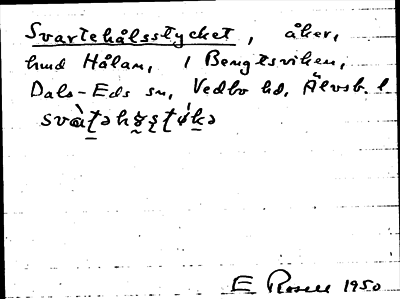 Svartehålsstycket, åker,
hmd Hålan, 1 Bengtsviken,
Dals-Eds sn, Vedbo hd, Älvsb. l
E Rosell 1950